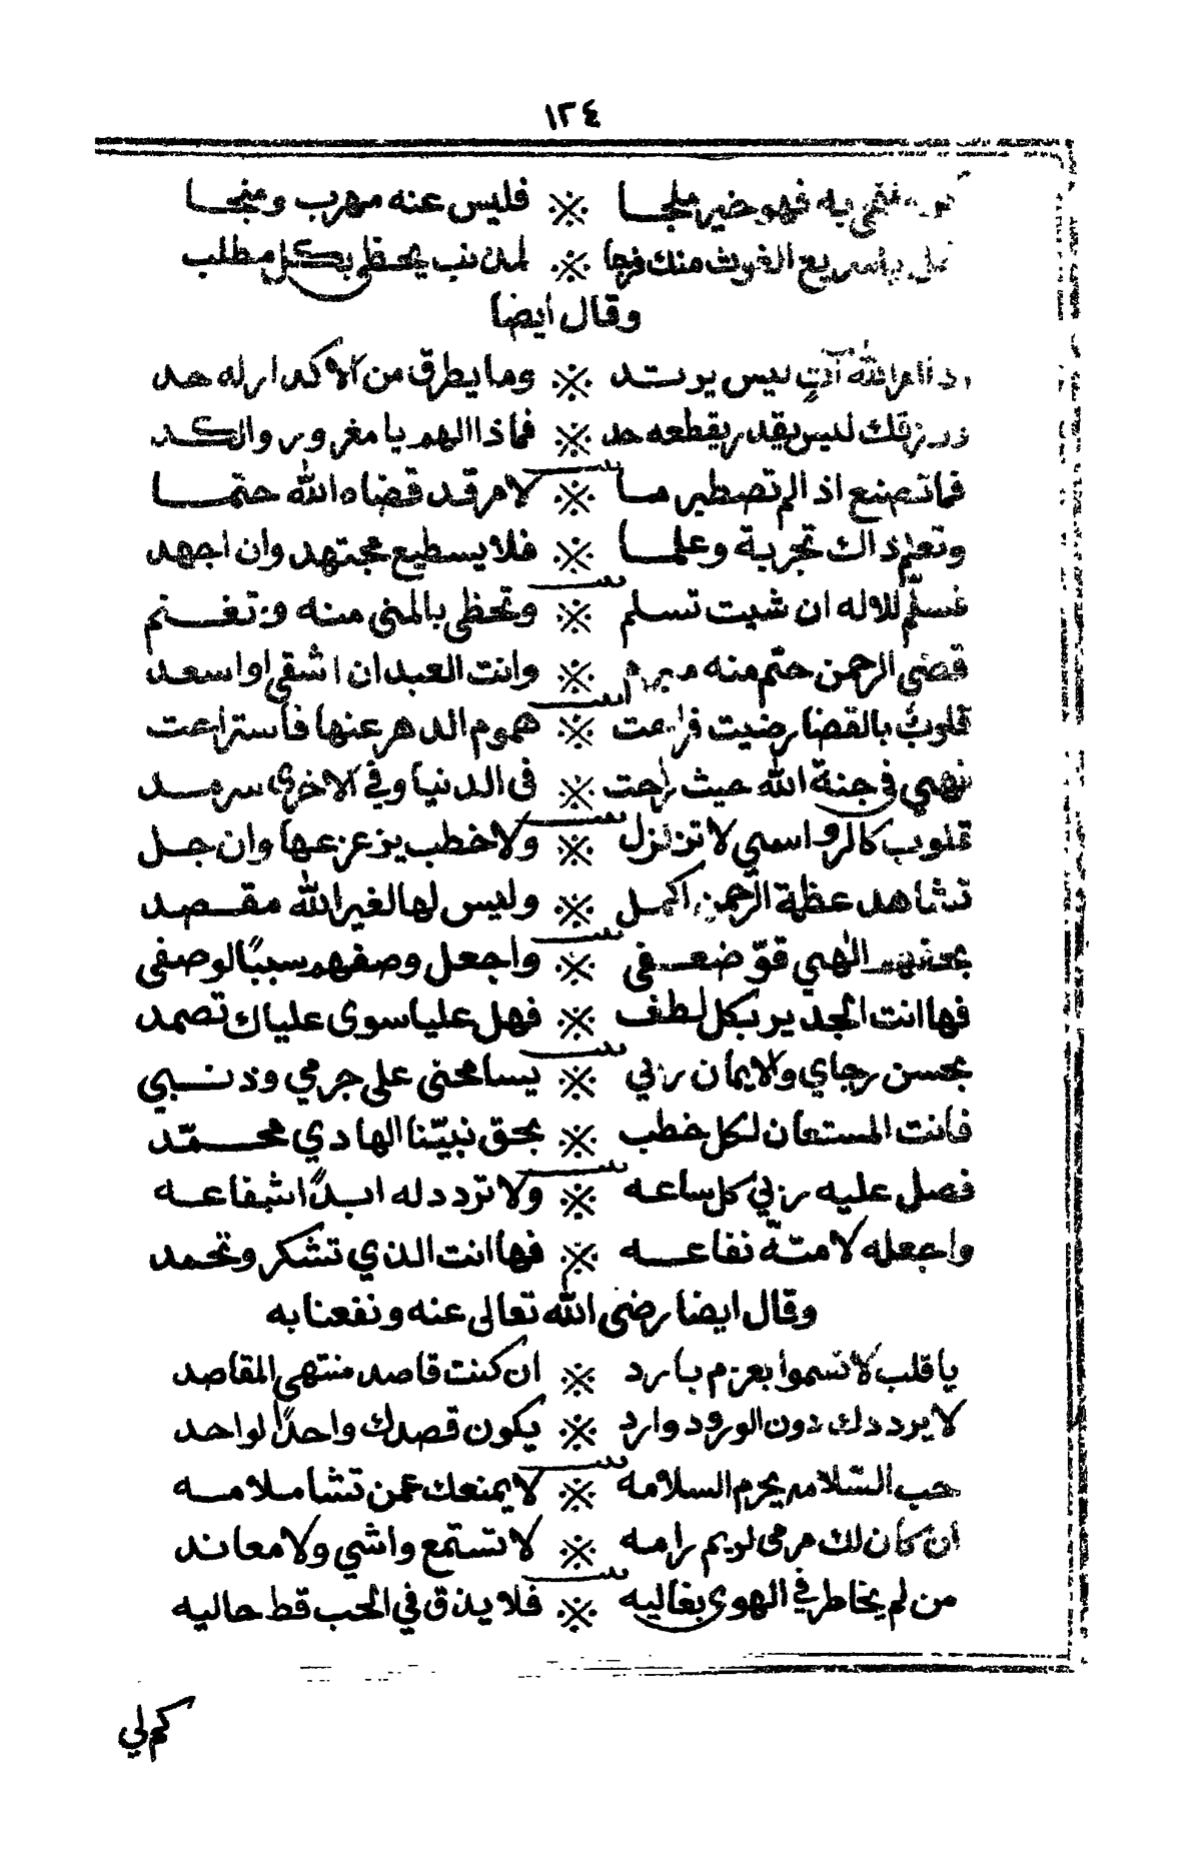 ١٢٤
فهو خير ملجا ※ فليس عنه مهرب ومنجا
الغوث منك فرجا ※ لمذنب يحظى بكل مطلب
وقال ايضا
الله آتٍ ليس يرتد ※ وما يطرق من الاكدار له حد
رزقك ليس يقدر يقطعه حد ※ فماذا الهم يا مغرور والكد
فما تصنع اذا لم تصطبر ما ※ لامر قد قضاه الله حتما
وتعلم ذاك تجربة وعلما ※ فلا يسطيع مجتهد وان اجهد
فسلّم للاله ان شيت تسلم ※ وتحظى بالمنى منه وتغنم
قضى الرحمن حتم منه مبرم ※ وانت العبد ان اشقى او اسعد
قلوبٌ بالقضا رضيت فراحت ※ هموم الدهر عنها فاستراحت
فهي في جنة الله حيث راحت ※ فى الدنيا وفي الاخرى سرمد
قلوب كالرواسي لا تزلزل ※ ولا خطب يزعزعها وان جل
تشاهد عظمة الرحمن اكمل ※ وليس لها لغير الله مقصد
بحقهم الٰهي قوّ ضعفى ※ واجعل وصفهم سببًا لوصفى
فها انت الجدير بكل لطف ※ فهل عليا سوى علياك تصمد
بحسن رجاي والايمان ربي ※ يسامحنى على جرمي وذنبي
فانت المستعان لكل خطب ※ بحق نبيّنا الهادي محمّد
فصل عليه ربي كل ساعه ※ ولا تردد له ابدًا شفاعه
واجعله لامتهّ نفاعه ※ فها انت الذي تشكر وتحمد
وقال ايضا رضى الله تعالى عنه ونفعنا به
يا قلب لا تسموا بعزم بارد ※ ان كنت قاصد منتهى المقاصد
لا يرددك دون الورود وارد ※ يكون قصدك واحدًا لواحد
حب السّلامه يحرم السلامه ※ لا يمنعك عمن تشا ملامه
ان كان لك مرمى لريم رامه ※ لا تستمع واشي ولا معاند
من لم يخاطر في الهوى بغاليه ※ فلا يذق في الحب قط حاليه
كم لي